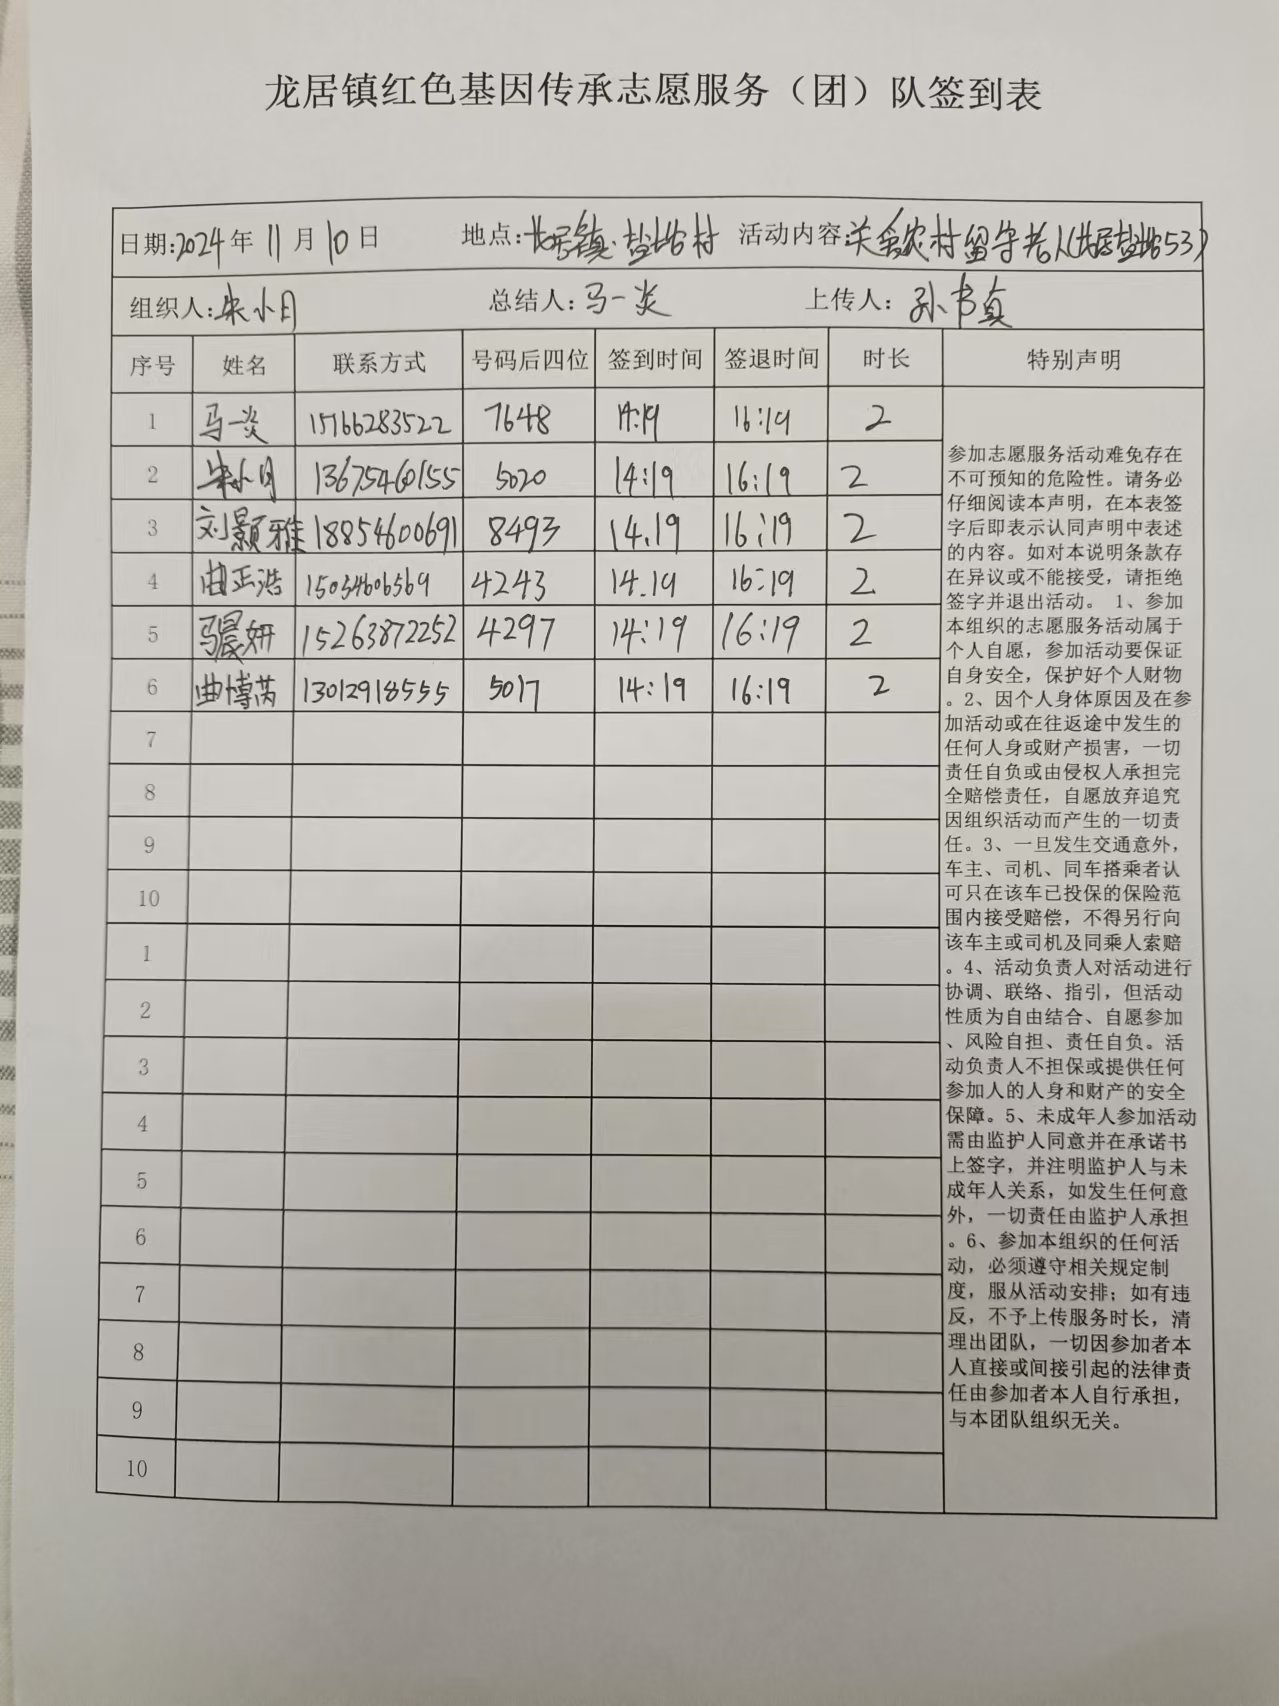 龙居镇红色基因传承志愿服务（团）队签到表
日期:2024年 11月 10日 地点:龙居镇 盐垛村 活动内容:关爱农村留守老人(龙居盐垛53)
组织人:朱小月 总结人:马一炎 上传人:孙书真
序号 姓名 联系方式 号码后四位 签到时间 签退时间 时长 特别声明
1 马一炎 15166283522 7648 14:19 16:19 2
2 朱小月 13675460155 5020 14:19 16:19 2
3 刘颢雅 18854600691 8493 14.19 16:19 2
4 曲正浩 15054606569 4243 14.19 16:19 2
5 马晨妍 15263872252 4297 14:19 16:19 2
6 曲博芮 13012918555 5017 14:19 16:19 2
7
8
9
10
1
2
3
4
5
6
7
8
9
10
参加志愿服务活动难免存在
不可预知的危险性。请务必
仔细阅读本声明，在本表签
字后即表示认同声明中表述
的内容。如对本说明条款存
在异议或不能接受，请拒绝
签字并退出活动。 1、参加
本组织的志愿服务活动属于
个人自愿，参加活动要保证
自身安全，保护好个人财物
。2、因个人身体原因及在参
加活动或在往返途中发生的
任何人身或财产损害，一切
责任自负或由侵权人承担完
全赔偿责任，自愿放弃追究
因组织活动而产生的一切责
任。3、一旦发生交通意外，
车主、司机、同车搭乘者认
可只在该车已投保的保险范
围内接受赔偿，不得另行向
该车主或司机及同乘人索赔
。4、活动负责人对活动进行
协调、联络、指引，但活动
性质为自由结合、自愿参加
、风险自担、责任自负。活
动负责人不担保或提供任何
参加人的人身和财产的安全
保障。5、未成年人参加活动
需由监护人同意并在承诺书
上签字，并注明监护人与未
成年人关系，如发生任何意
外，一切责任由监护人承担
。6、参加本组织的任何活
动，必须遵守相关规定制
度，服从活动安排；如有违
反，不予上传服务时长，清
理出团队，一切因参加者本
人直接或间接引起的法律责
任由参加者本人自行承担，
与本团队组织无关。